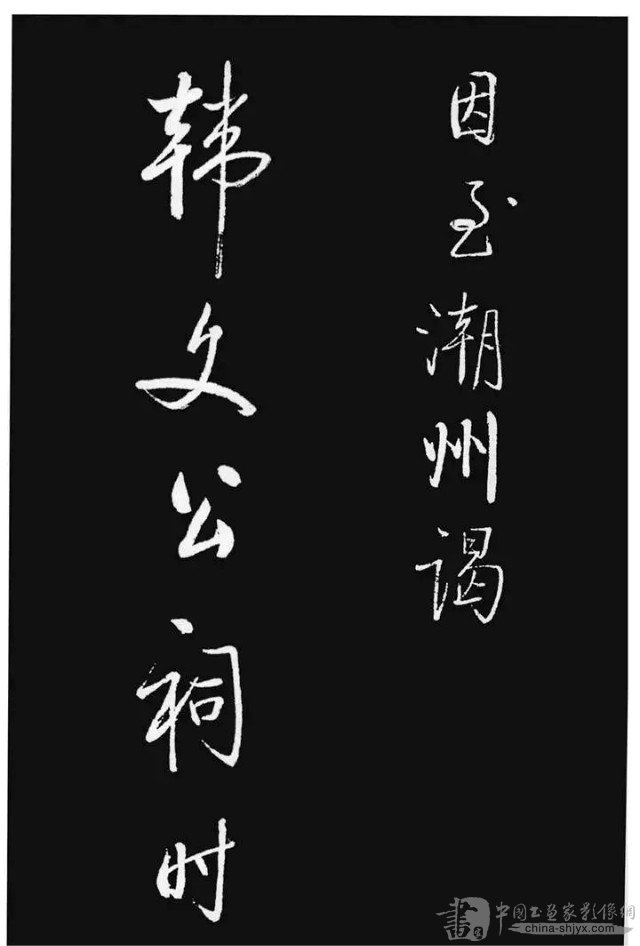 因至潮州谒
韩文公祠时
書 中国书画家影像网
china-shjyx.com